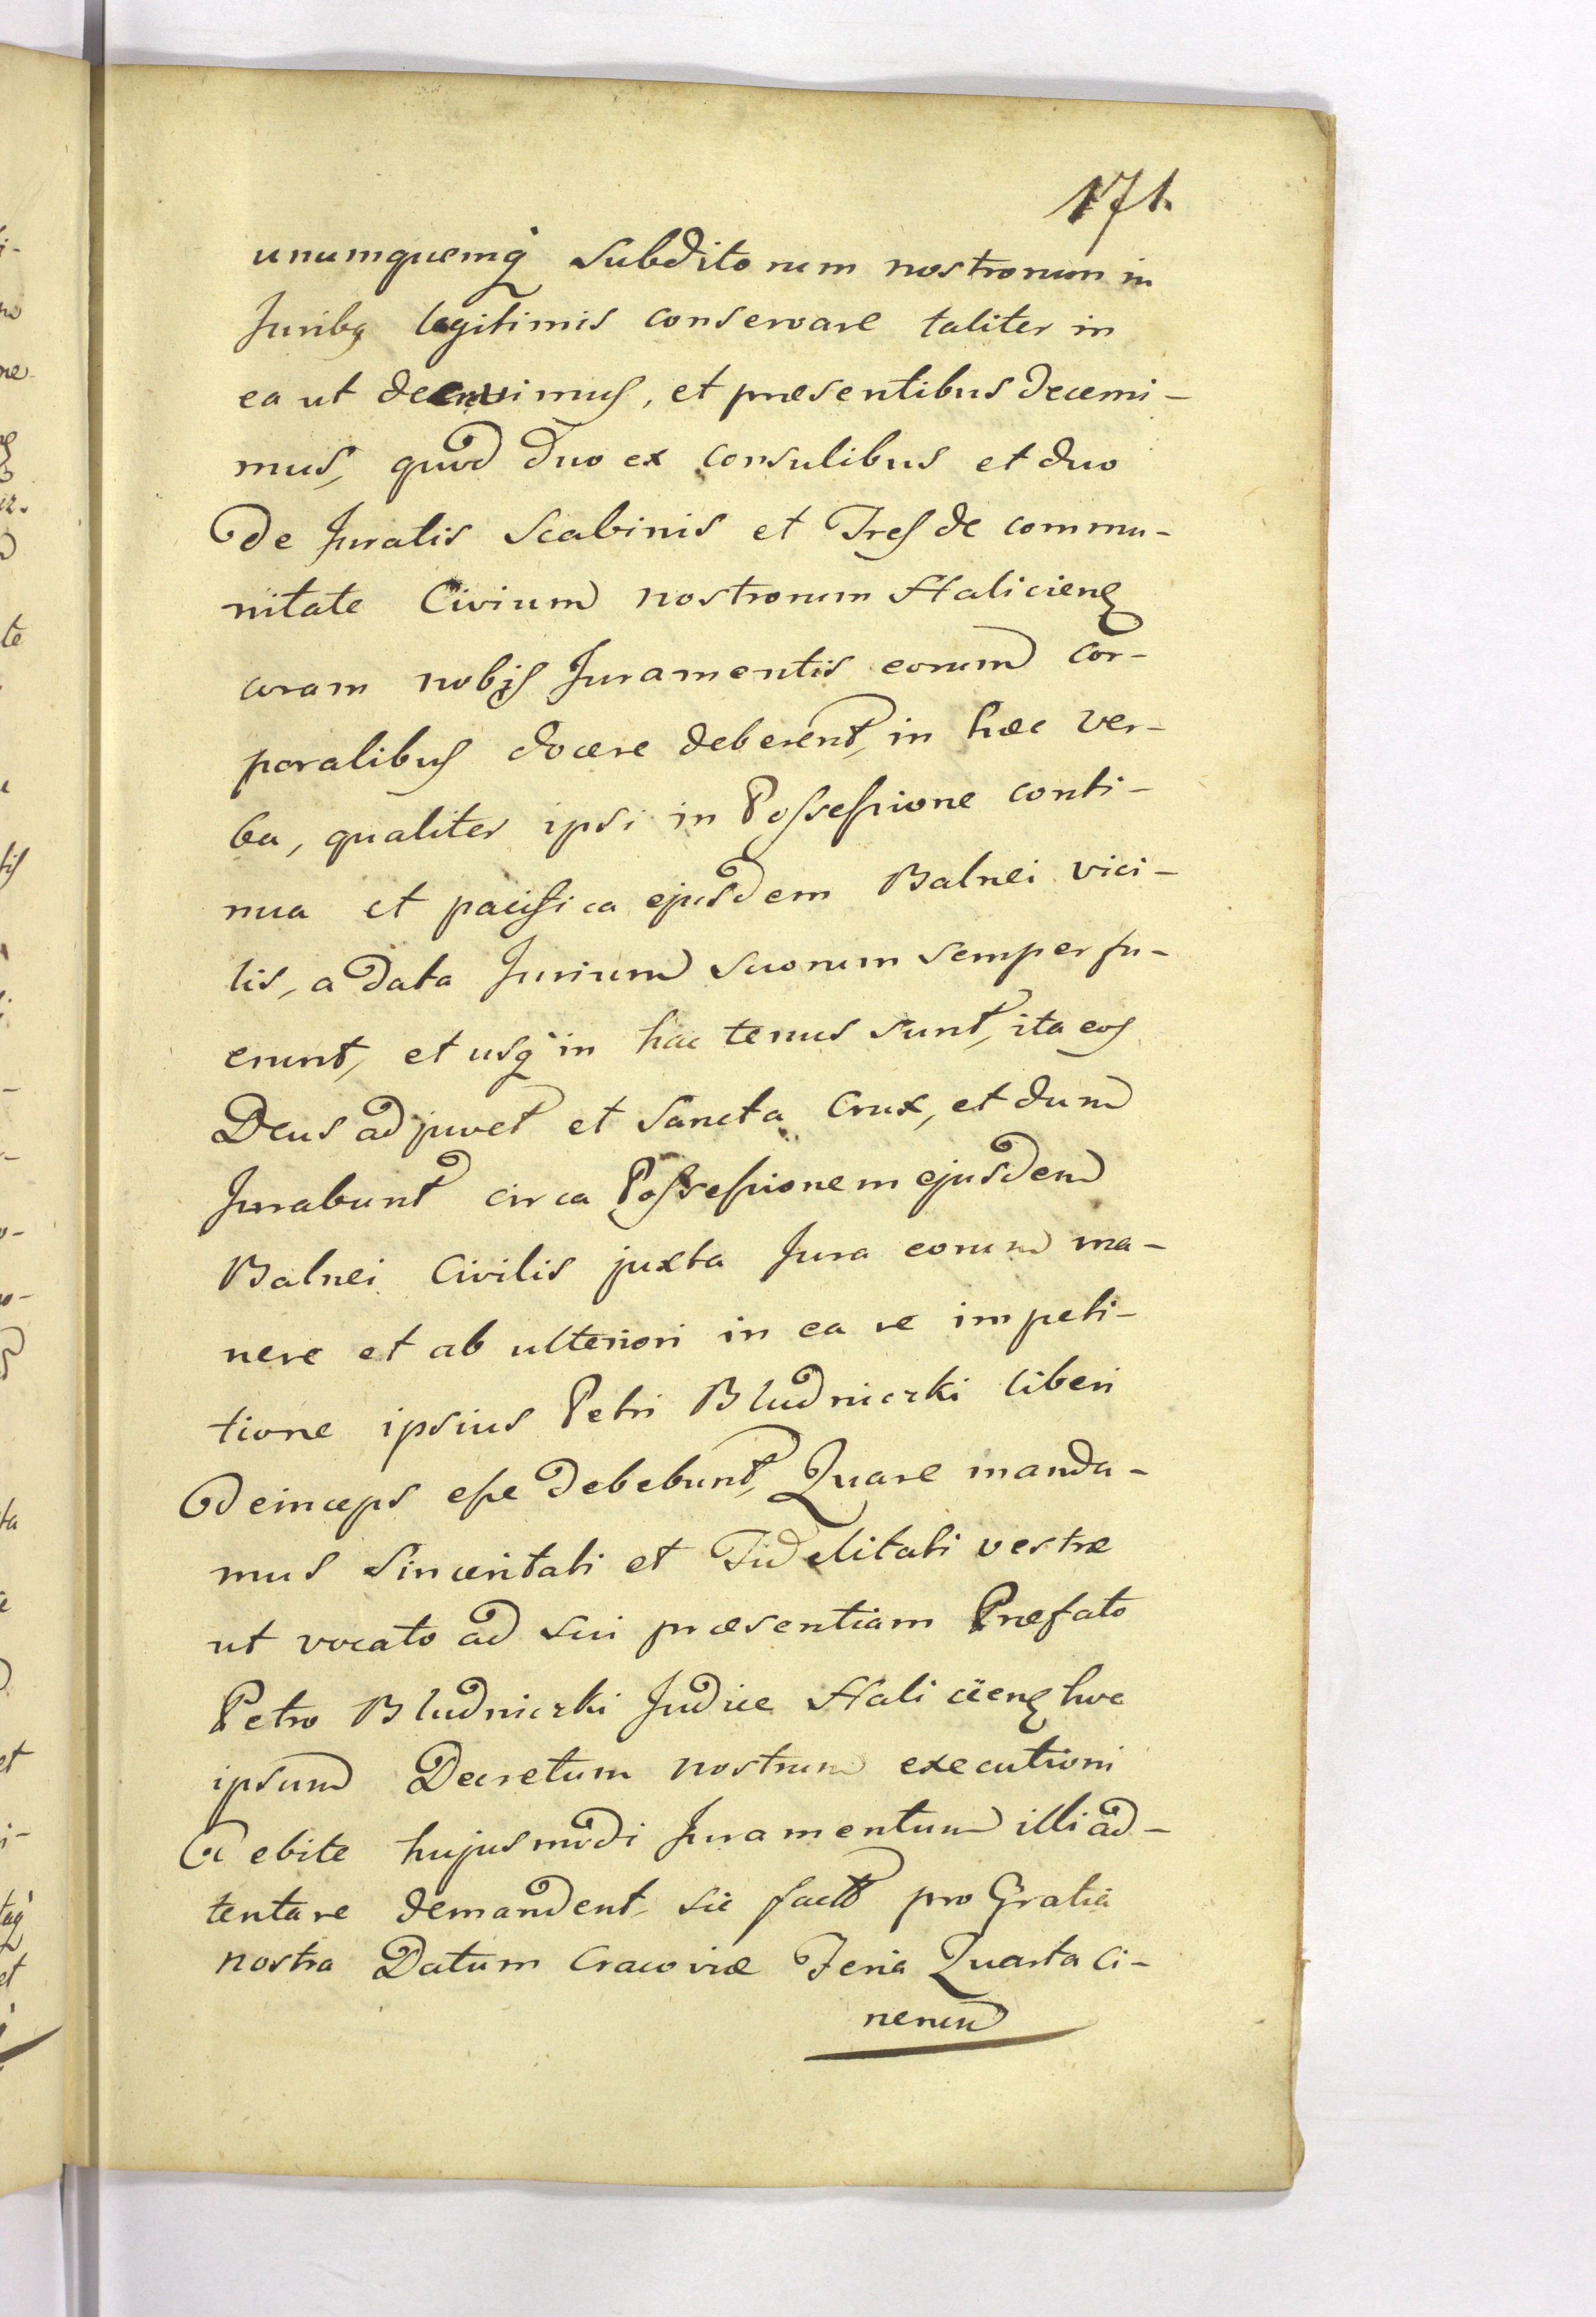 171.
unumquemq̀ subditorum nostrorum in
Juribq legitimis conservare taliter in
ea ut decrevimus, et præsentibus decerni-
mus, quod duo ex consulibus et duo
de Juratis Scabinis et Tres de commu-
nitate Civium nostrorum Halicienꝫ
coram nobis Juramentis eorum cor-
poralibus docere deberent, in hæc ver-
ba, qualiter ipsi in Possessione conti-
nua et pacifica ejusdem Balnei vici-
lis, a data Jurium suorum semper fu-
erunt, et usq̀ in hac tenus sunt, ita eos
Deus adjuvet et Sancta Crux, et dum
Jurabunt circa Possessionem ejusdem
Balnei Civilis juxta Jura eorum ma-
nere et ab ulteriori in ea re impeti-
tione ipsius Petri Bludniczki liberi
deinceps esse debebunt, Quare manda-
mus Sinceritati et Fidelitati vestræ
ut vocato ad sui præsentiam Præfato
Petro Bludniczki Judice Halicienꝫ hoc
ipsum Decretum nostrum executioni
debite hujusmodi Juramentum illi ad-
tentare demandent, sic facto pro Gratia
nostra Datum Cracoviæ Feria Quarta Ci-
nerum